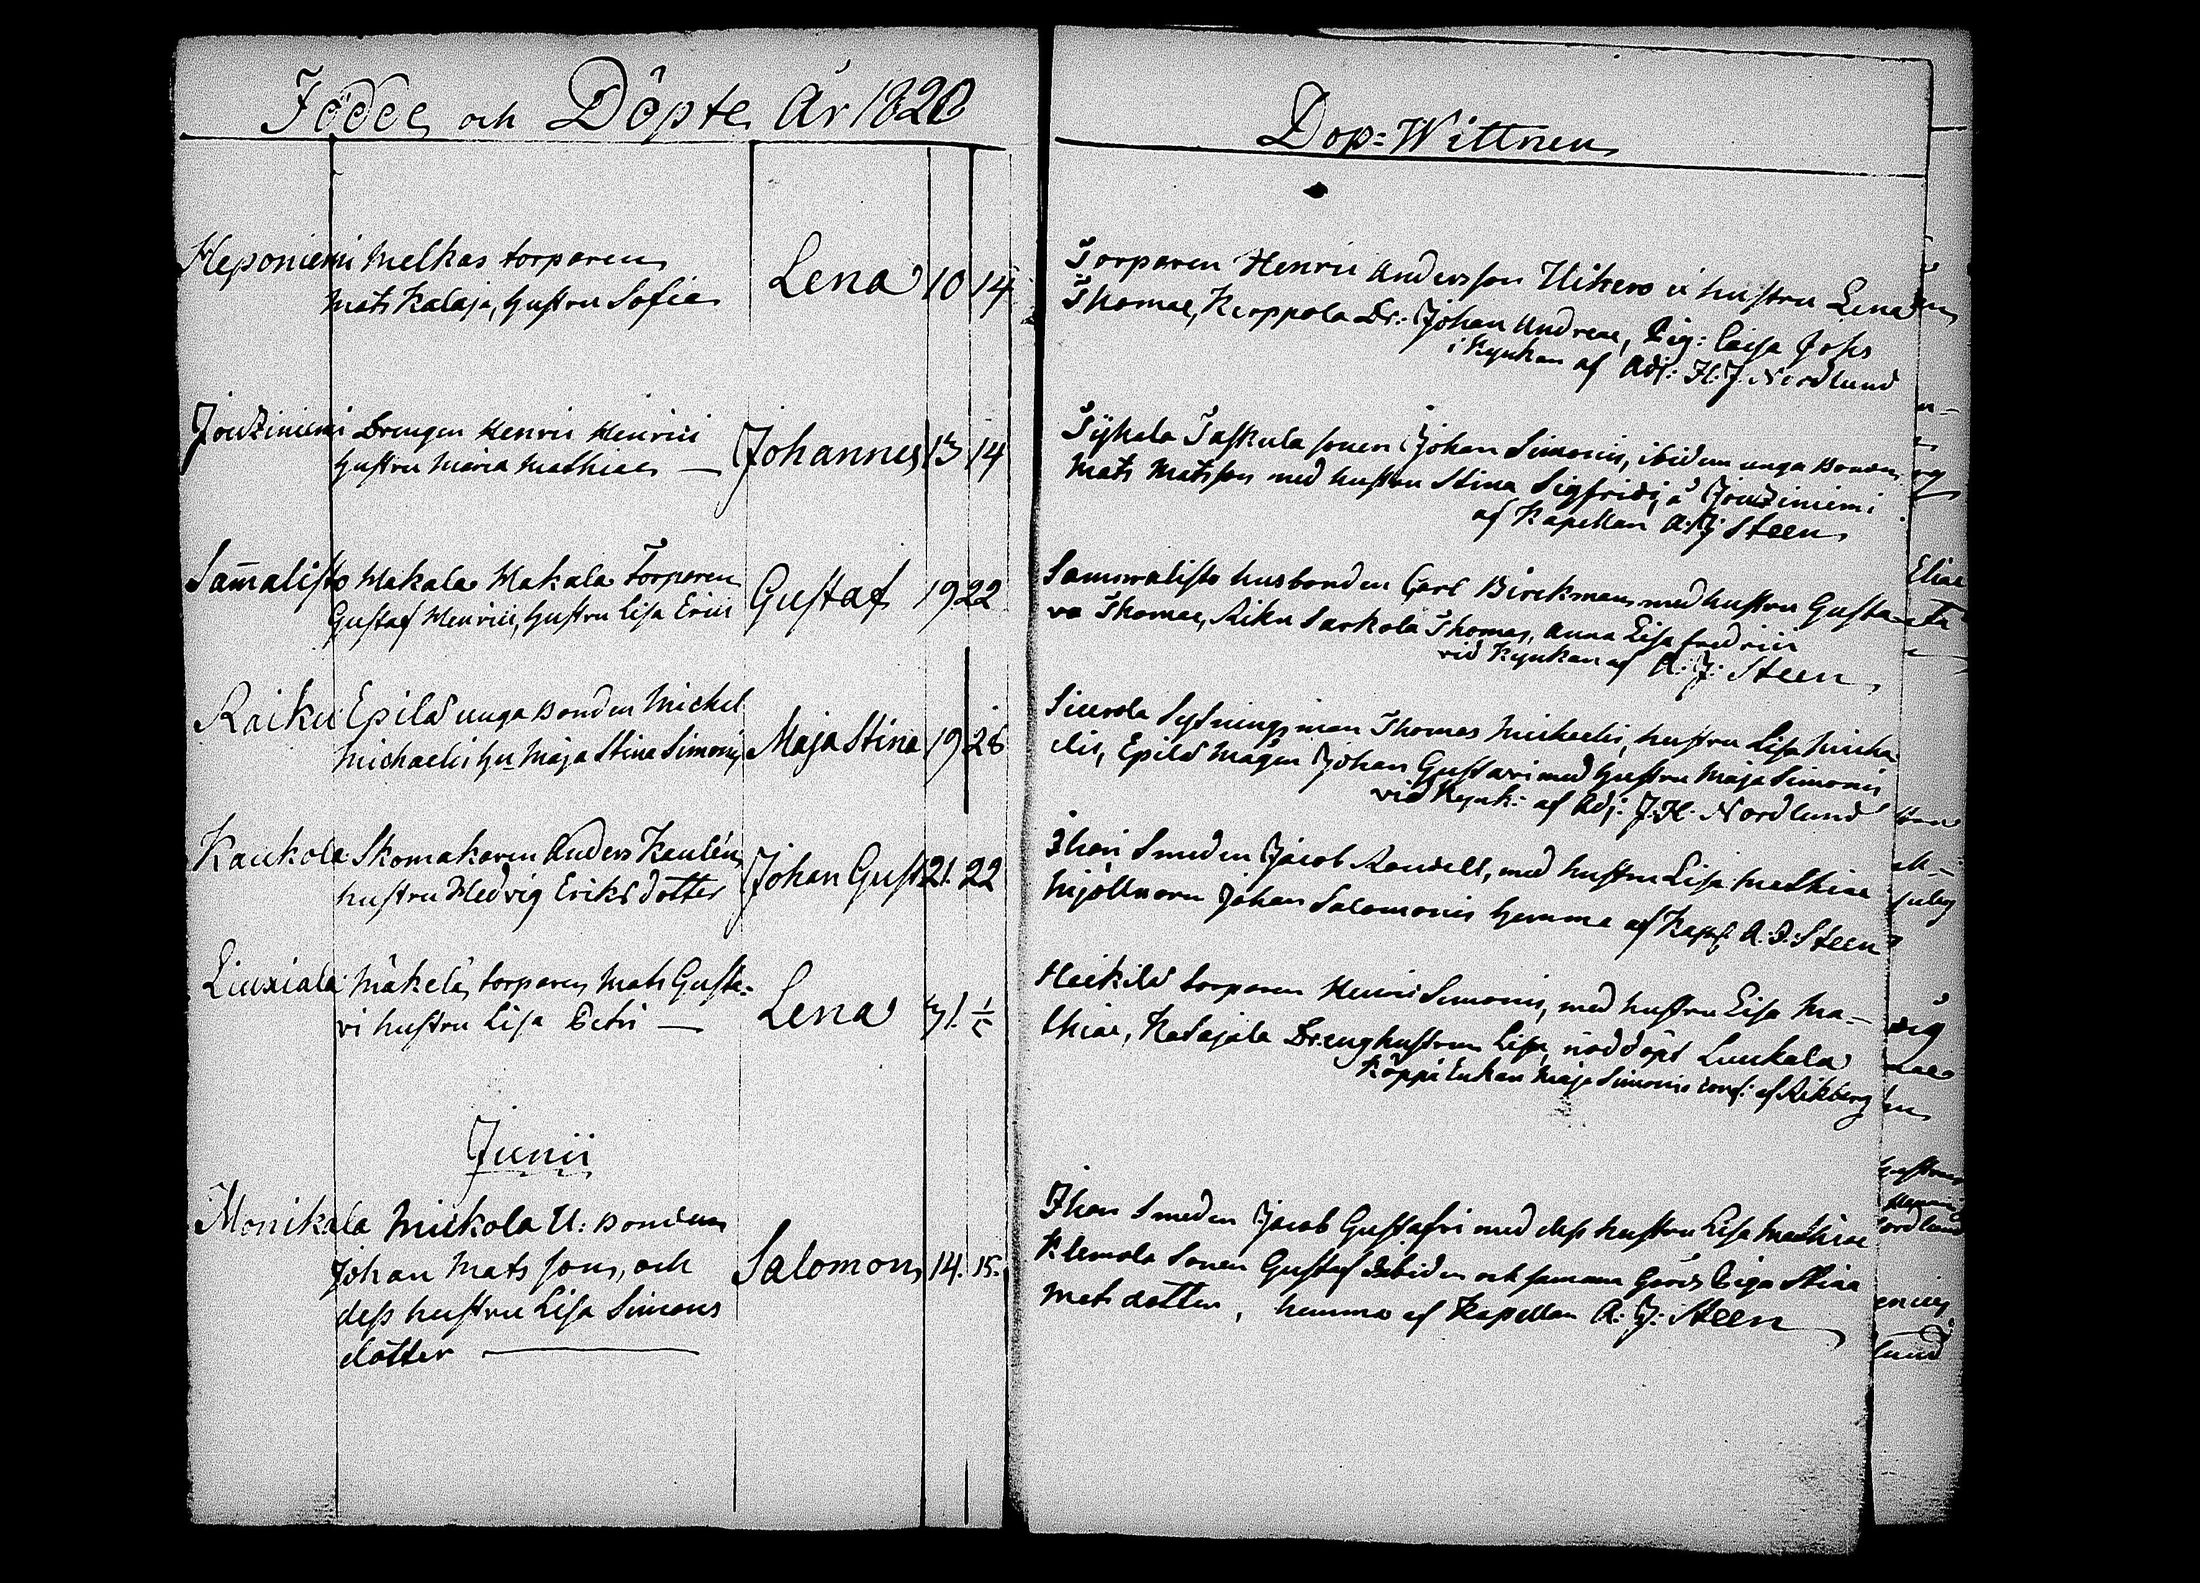 Födde och Döpte År 1828
Heponiemi Melkas torparen
Mats Kalaja, hustru Sofia
Lena 10 14
Jouziniemi Drengen Henric Henrici
hustru Maria Mathiae
Johannes 13 14
Sam̄alisto Makala Makala Torparen
Gustaf Henrici, hustru Lisa Erici
Gustaf 19 22
Raiku Epilä unga Bonden Michel
Michaelis hu Maja Stina Simonis
Maja Stina 19 26
Kaukola Skomakaren Anders Kaulén
hustru Hedvig Eriksdotter
Johan Gust 21. 22
Liuxiala Mäkelä torparen Mats Gusta-
vi hustru Lisa Petri
Lena 31.
Junii
Monikala Mickola U: Bonden
Johan Mats son, och
dess hustru Lisa Simons
dotter
Salomon 14. 15.
Dop-Wittnen
Torparen Henric Andersson hustru Lena
Thomae, Keoppola Dr: Johan Andreae, Pig: Caisa Johs
i Kyrkan af Adj: H: J. Nordlund
Tykela Taskula sonen Johan Simonis, ibidem unga Bonden
Mats Matsson med hustru Stina Sigfridi, å Jouziniemi
af Kapellan A: J: Steen
Sammalisto husbonden Carl Birckman, med hustru Gusta-
va Thomae, Riku Sarkola Thomas, Anna Lisa Fredrici
vid Kyrkan af A: J: Steen
Thomas Michaelis, hustru Lisa Micha
elis, Epilä Mågen Johan Gustavi med hustru Maja Simonis
vid Kyrk: af Adj: J. H. Nordlund
Ihari Smeden Jacob med hustru Lisa Mathiae
Mjölnaren Johan Salomonis hemma af Kapel. A: J: Steen
Heikilä torparen Henric Simonis, med hustru Lisa Ma-
thiae, Katajala Drenghustrun Lisa, nöddöpt Luukala
Köppä Enkan Maja Simonis conf: af Rikberg
Ihari Smeden Jacob Gustafsi med dess hustru Lisa Mathiae
Klemola Sonen Gustaf Ibidem och samma Gårds Piga Stina
Mats dotter, hemma af Kapellan A: J: Steen